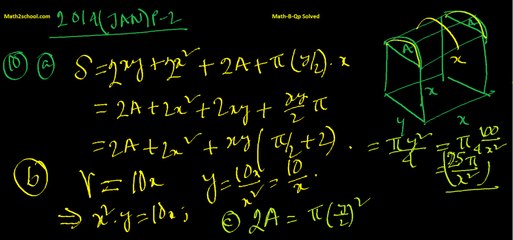 Math2school.com
Math-B-Qp Solved
2014(JAN)P-2
(10) (a) S = 2xy + 2x² + 2A + π(y/2)·x
= 2A + 2x² + 2xy + xy/2 π
= 2A + 2x² + xy(π/2 + 2).
(b) V = 10x y = 10x/x² = 10/x.
⇒ x²·y = 10x;
(c) 2A = π(y/2)²
= πy²/4 = π 100/4x²
= (25π/x²)
A
A
x
x
x
y